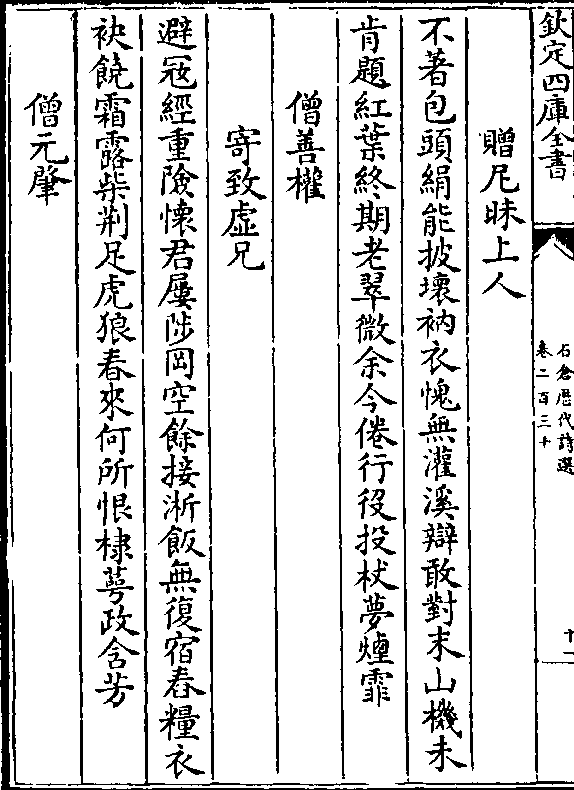 欽定四庫全書
石倉歴代詩選
卷二百三十
十一
贈尼昧上人
不著包頭絹能披壞衲衣愧無灌溪辯敢對末山機未
肯題紅葉終期老翠微余今倦行役投杖夢煙霏
僧善權
寄致虚兄
避宼經重險懷君屢陟岡空餘接淅飯無復宿舂糧衣
袂饒霜露柴荆足虎狼春來何所恨棣萼政含芳
僧元肇